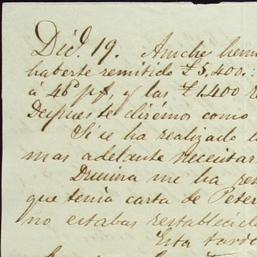 Dic. 19. Anoche hem
haberte remitido £5,400.
á 46 p/f, y las £1400
Despues te dirémos como
Si se ha realizado
mas adelante necesitar
me ha rem
que tenia carta de Peter
no estabas restablecid
Esta tarde